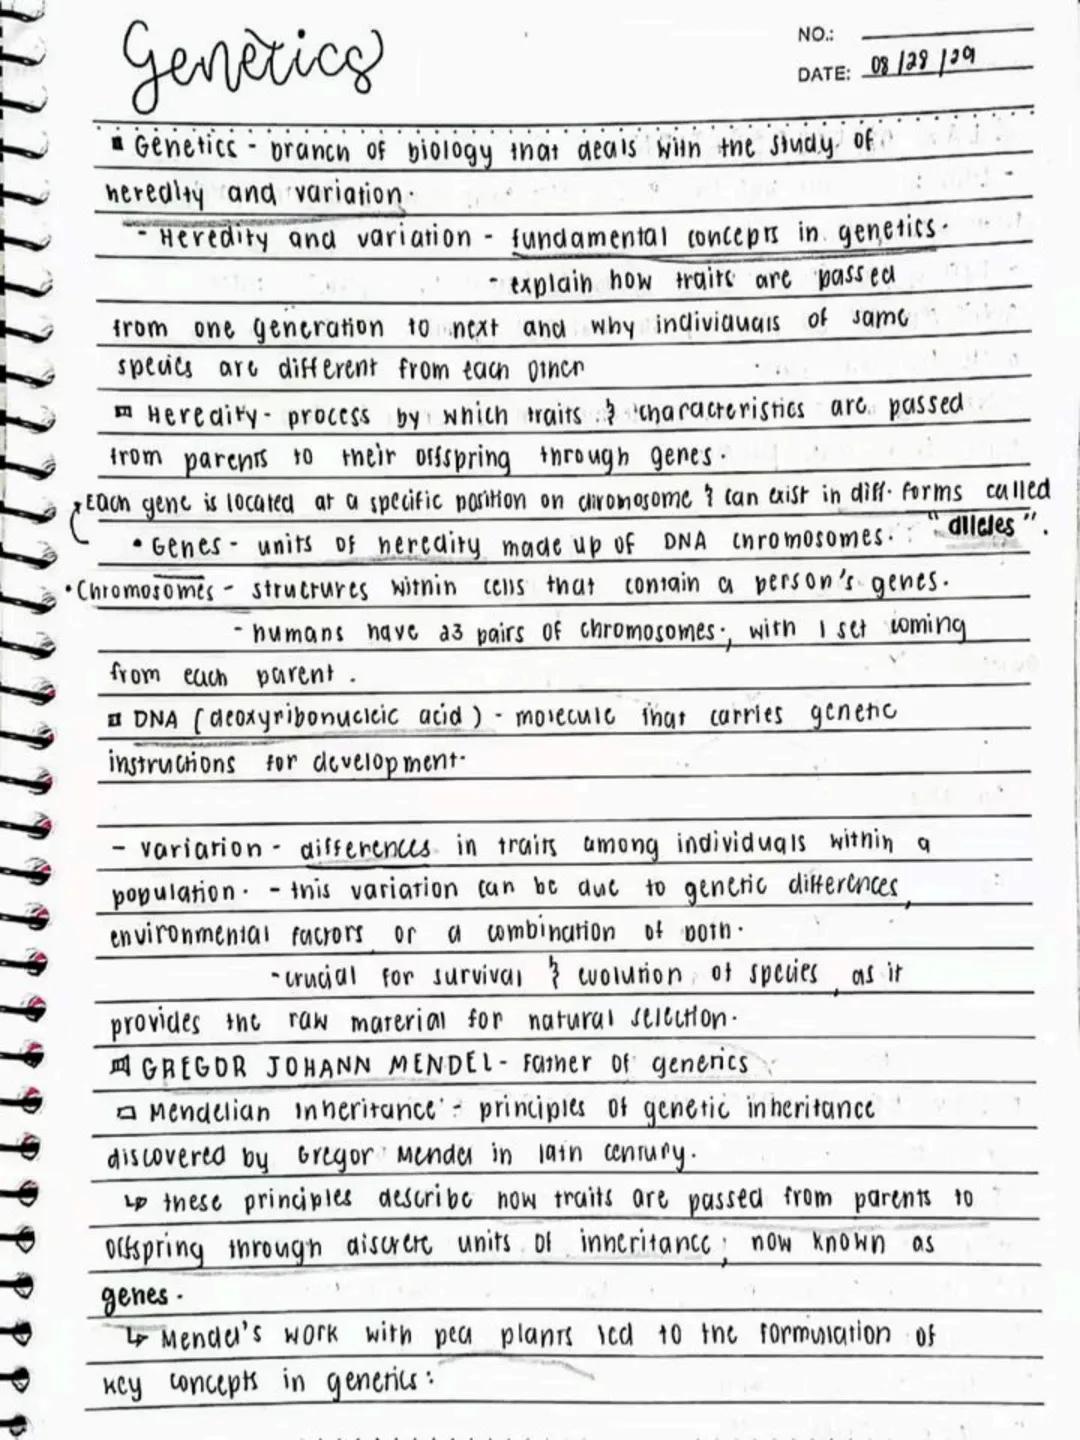 Genetics
NO.:
DATE: 08/28/29
Genetics - branch of biology that deals with the study of
heredity and variation.
- Heredity and variation - fundamental concepts in genetics.
- explain how traits are passed
from one generation to next and why individuals of same
species are different from each other
Heredity - process by which traits & characteristics are passed
from parents to their offspring through genes.
Each gene is located at a specific position on chromosome & can exist in diff. forms called
"alleles".
• Genes - units of heredity made up of DNA chromosomes.
• Chromosomes - structures within cells that contain a person's genes.
- humans have 23 pairs of chromosomes, with 1 set coming
from each parent.
DNA (deoxyribonucleic acid) - molecule that carries genetic
instructions for development.
- variation - differences in traits among individuals within a
population. - this variation can be due to genetic differences,
environmental factors or a combination of both.
- crucial for survival & evolution of species, as it
provides the raw material for natural selection.
GREGOR JOHANN MENDEL - Father of genetics
Mendelian Inheritance - principles of genetic inheritance
discovered by Gregor Mendel in 19th century.
↳ these principles describe how traits are passed from parents to
offspring through discrete units of inheritance, now known as
genes.
↳ Mendel's work with pea plants led to the formulation of
key concepts in genetics: